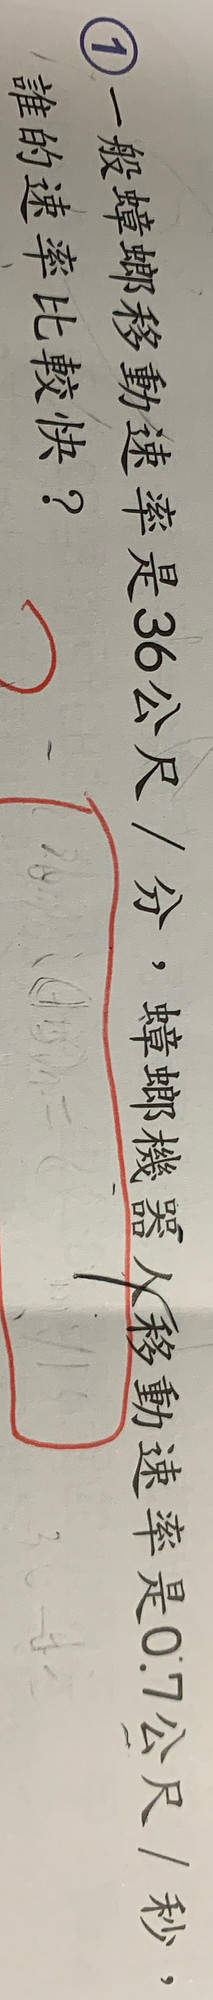 ① 一般蟑螂移動速率是36公尺/分，蟑螂機器人移動速率是0.7公尺/秒，
誰的速率比較快？